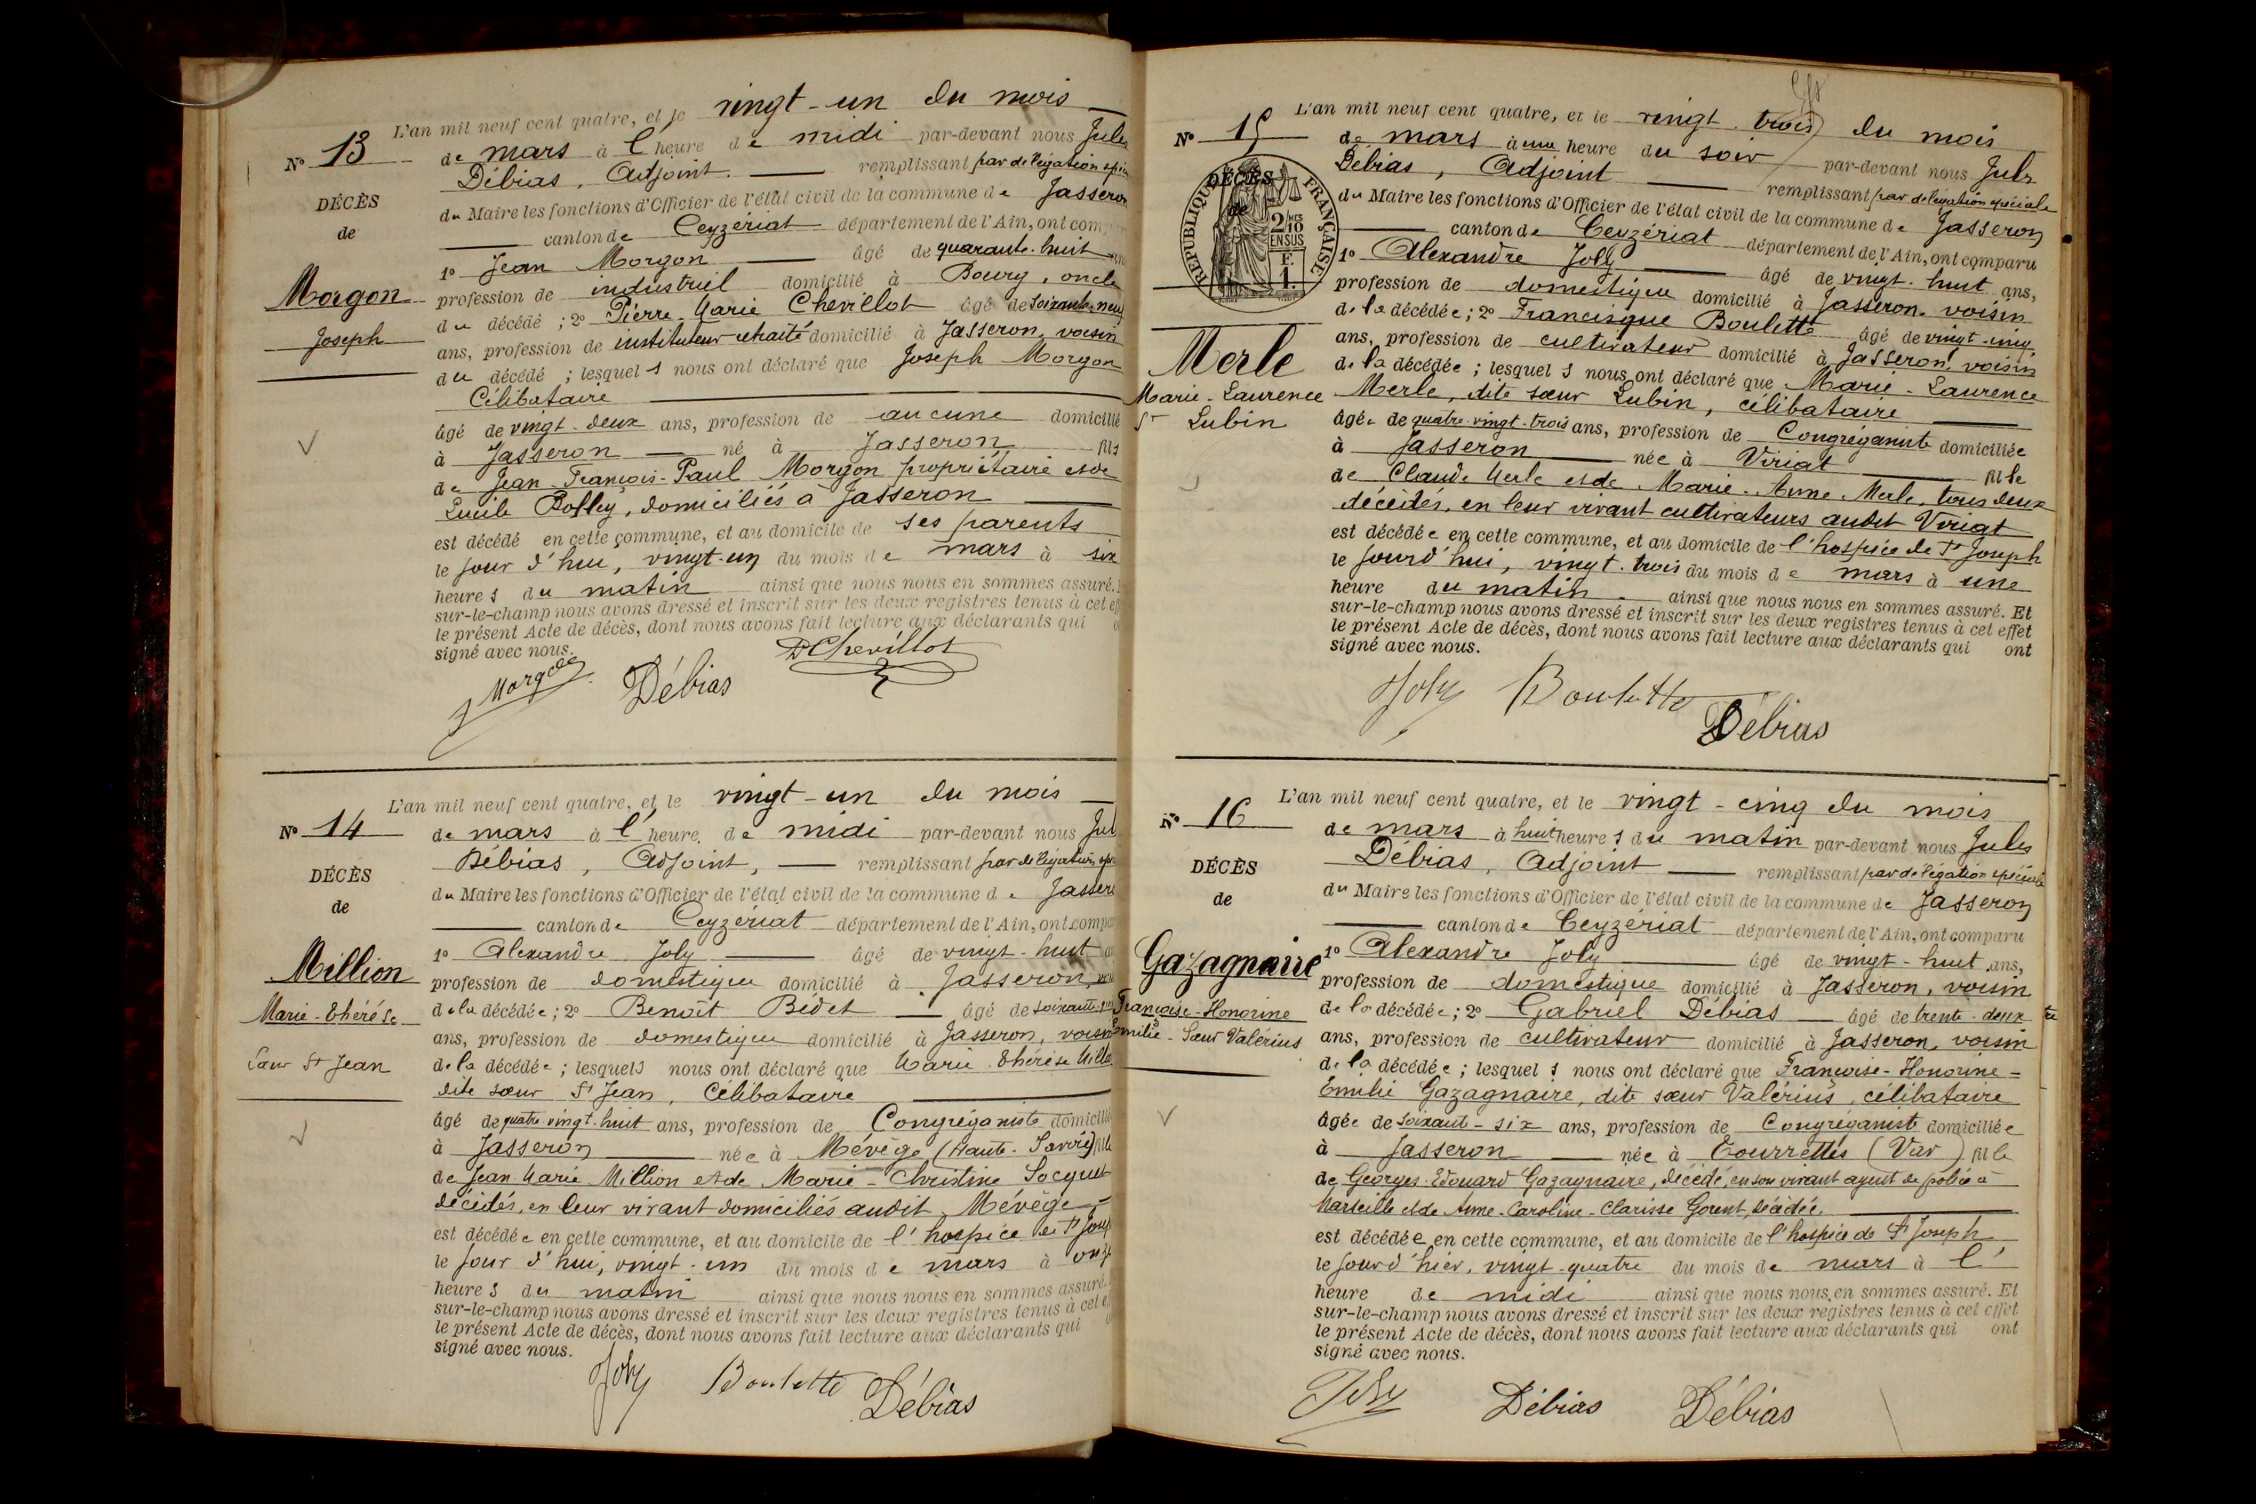 L'an mil neuf cent quatre, et le vingt-un du mois
N° 13
de mars à l'heure de midi par-devant nous Jules
Débias, Adjoint. remplissant par délégation
DÉCÈS
du Maire les fonctions d'Officier de l'état civil de la commune de Jasseron
de
canton de Ceyzériat département de l'Ain, ont
1° Jean Morgon âgé de quarante-huit
Morgon
profession de industriel domicilié à Bourg, oncle
Joseph
du décédé ; 2° Pierre-Marie Chevillot âgé de soixante-neuf
ans, profession de instituteur retraité domicilié à Jasseron, voisin
du décédé ; lesquels nous ont déclaré que Joseph Morgon
Célibataire
âgé de vingt-deux ans, profession de aucune domicilié
à Jasseron né à Jasseron fils
de Jean-François-Paul Morgon propriétaire et de
Lucile Bolley, domiciliés à Jasseron
est décédé en cette commune, et au domicile de ses parents
le jour d'hui, vingt-un du mois de mars à six
heures du matin ainsi que nous nous en sommes assuré.
sur-le-champ nous avons dressé et inscrit sur les deux registres tenus à cet
le présent Acte de décès, dont nous avons fait lecture aux déclarants qui
signé avec nous.
J Morgon Débias P Chevillot
L'an mil neuf cent quatre, et le vingt-un du mois
N° 14
de mars à l'heure de midi par-devant nous
Débias, Adjoint, remplissant par délégation
DÉCÈS
du Maire les fonctions d'Officier de l'état civil de la commune de
de
canton de Ceyzériat département de l'Ain, ont
1° Alexandre Joly âgé de vingt-huit
Million
profession de domestique domicilié à Jasseron,
Marie-Thérèse
de la décédée ; 2° Benoît Bidet âgé de
ans, profession de domestique domicilié à Jasseron, voisin
Sœur St Jean
de la décédée ; lesquels nous ont déclaré que Marie-Thérèse
dite sœur St Jean, Célibataire
âgé de quatre vingt-huit ans, profession de Congréganiste
à Jasseron née à Mévège (Haute-Savoie)
de Jean Marie Million et de Marie-Christine Socquet
décédés, en leur vivant domiciliés audit Mévège
est décédée en cette commune, et au domicile de l'hospice de St
le jour d'hui, vingt-un du mois de mars à
heures du matin ainsi que nous nous en sommes assuré.
sur-le-champ nous avons dressé et inscrit sur les deux registres tenus à cet
le présent Acte de décès, dont nous avons fait lecture aux déclarants qui
signé avec nous.
Joly Boulette Débias
L'an mil neuf cent quatre, et le vingt-trois du mois
N° 15
de mars à une heure du soir par-devant nous Jules
Débias, Adjoint remplissant par délégation spéciale
DÉCÈS
de
RÉPUBLIQUE FRANÇAISE
2/10 EN SUS
F. 1.
du Maire les fonctions d'Officier de l'état civil de la commune de Jasseron
canton de Ceyzériat département de l'Ain, ont comparu
1° Alexandre Joly âgé de vingt-huit ans,
profession de domestique domicilié à Jasseron, voisin
de la décédée ; 2° Francisque Boulette âgé de vingt-cinq
ans, profession de cultivateur domicilié à Jasseron, voisin
Merle
de la décédée ; lesquels nous ont déclaré que Marie-Laurence
Marie-Laurence
Merle, dite sœur Lubin, célibataire
Sr Lubin
âgée de quatre-vingt-trois ans, profession de Congréganiste domiciliée
à Jasseron née à Viriat fille
de Claude Merle et de Marie-Anne Merle, tous deux
décédés, en leur vivant cultivateurs audit Viriat
est décédée en cette commune, et au domicile de l'hospice de St Joseph
le jourd'hui, vingt-trois du mois de mars à une
heure du matin ainsi que nous nous en sommes assuré. Et
sur-le-champ nous avons dressé et inscrit sur les deux registres tenus à cet effet
le présent Acte de décès, dont nous avons fait lecture aux déclarants qui ont
signé avec nous.
Joly Boulette Débias
L'an mil neuf cent quatre, et le vingt-cinq du mois
N° 16
de mars à huit heures du matin par-devant nous Jules
Débias, Adjoint remplissant par délégation spéciale
DÉCÈS
du Maire les fonctions d'Officier de l'état civil de la commune de Jasseron
de
canton de Ceyzériat département de l'Ain, ont comparu
1° Alexandre Joly âgé de vingt-huit ans,
Gazagnaire
profession de domestique domicilié à Jasseron, voisin
Françoise-Honorine
de la décédée ; 2° Gabriel Débias âgé de trente-deux
Emilie-Sœur Valérius
ans, profession de cultivateur domicilié à Jasseron, voisin
de la décédée ; lesquels nous ont déclaré que Françoise-Honorine-
Emilie Gazagnaire, dite sœur Valérius, célibataire
âgée de soixante-six ans, profession de Congréganiste domiciliée
à Jasseron née à Tourrettes (Var) fille
de Georges-Edouard Gazagnaire, décédé, en son vivant agent de police à
Marseille et de Anne-Caroline-Clarisse Gorent, décédée,
est décédée en cette commune, et au domicile de l'hospice de St Joseph
le jourd'hier, vingt-quatre du mois de mars à l'
heure de midi ainsi que nous nous en sommes assuré. Et
sur-le-champ nous avons dressé et inscrit sur les deux registres tenus à cet effet
le présent Acte de décès, dont nous avons fait lecture aux déclarants qui ont
signé avec nous.
Joly Débias Débias